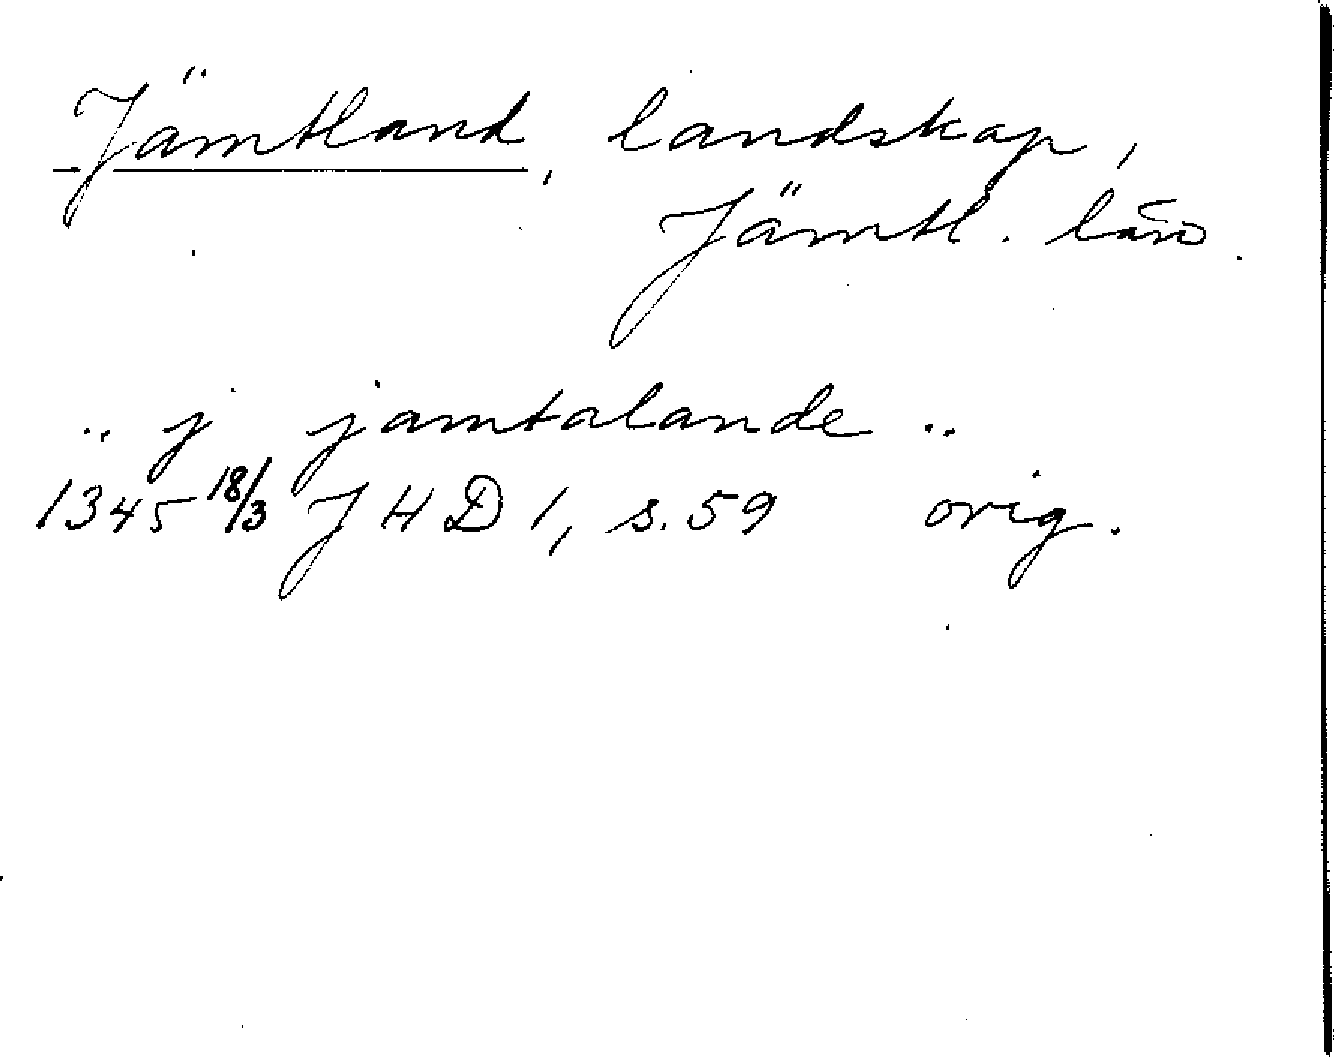 Jämtland, landskap,
Jämtl. län.
.. j jamtalande ..
1345 18/3 JHD 1, s. 59 orig.